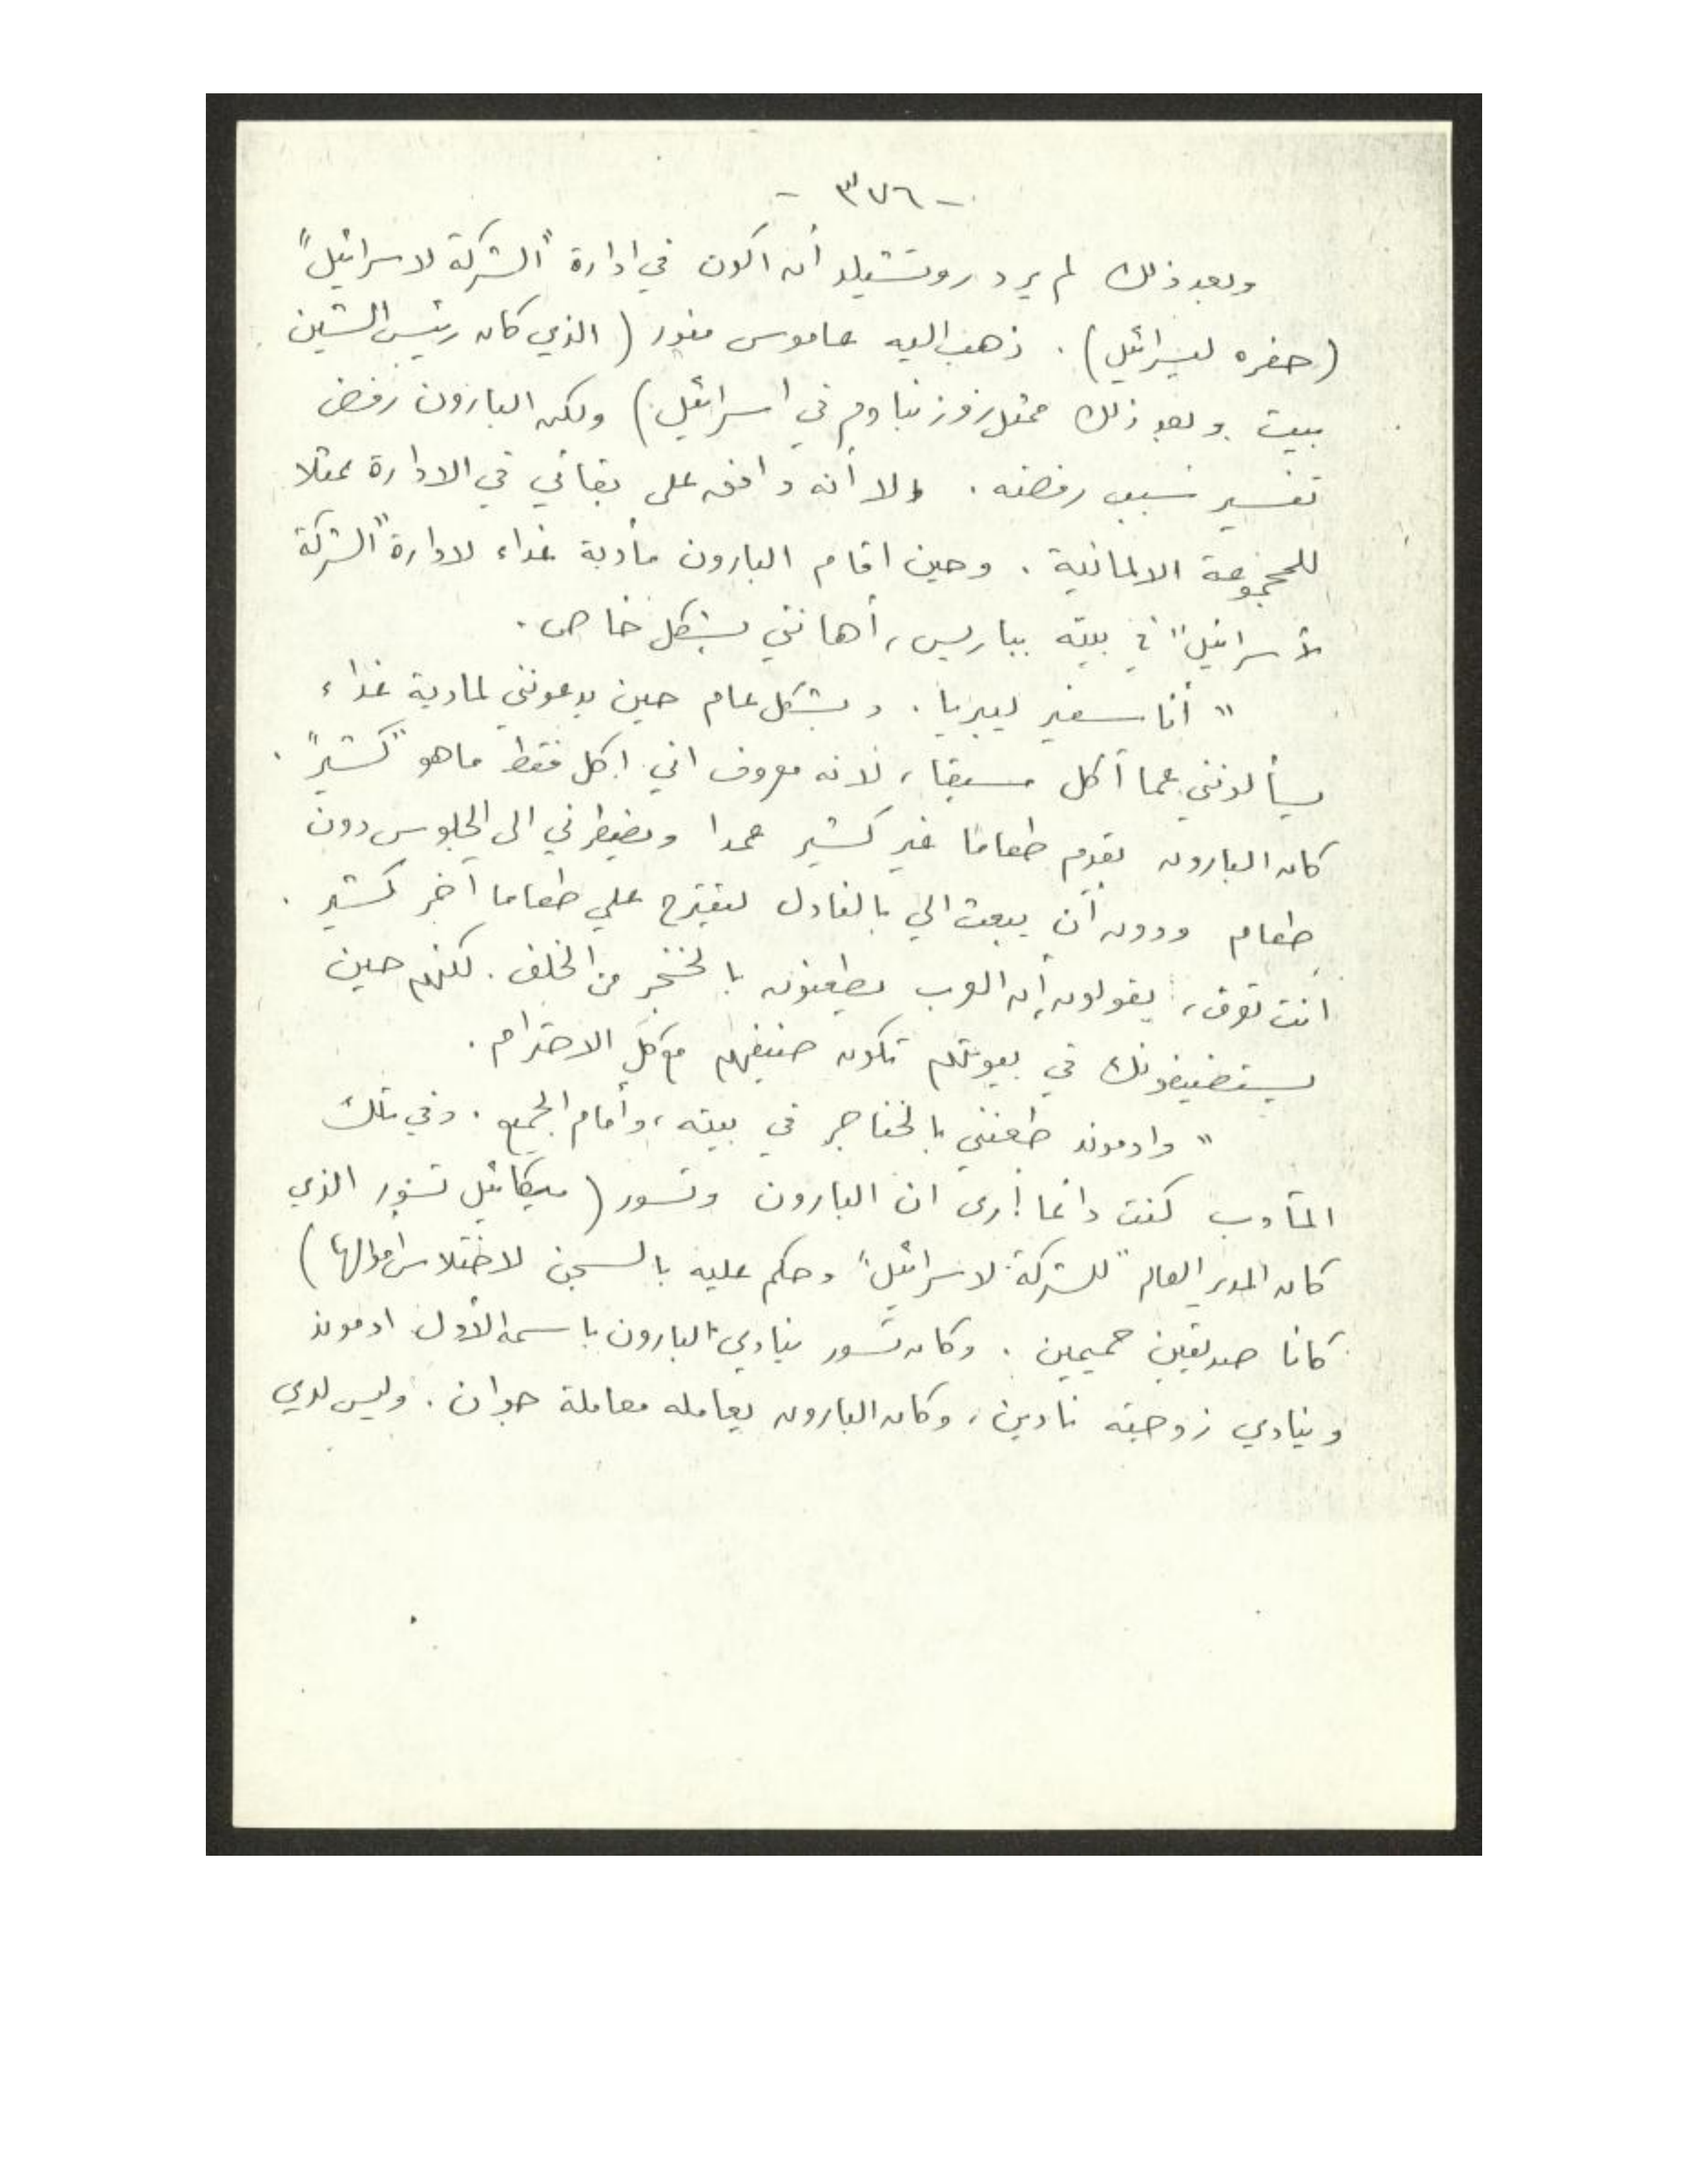 - ٣٧٦ -
وبعد ذلك لم يرد روتشيلد أن اكون في ادارة "الشركة لاسرائيل"
(حفره ليسرائيل) . ذهب اليه عاموس منور ( الذي كان رئيس الشين
بيت وبعد ذلك ممثل روزنباوم في اسرائيل) ولكن البارون رفض
تفسير سبب رفضه . الا أنه وافق على بقائي في الادارة ممثلا
للمجموعة الالمانية . وحين اقام البارون مأدبة غداء لادارة "الشركة
لأسرائيل" في بيته بباريس ، أهانني بشكل خاص .
" أنا سفير ليبريا . وبشكل عام حين يدعونني لمادبة غداء
يسألونني عما آكل مسبقا ، لانه معروف اني اكل فقط ما هو "كشير" .
كان البارون يقدم طعاما غير كشير عمدا ويضطرني الى الجلوس دون
طعام ودون أن يبعث الي بالنادل ليقترح علي طعاما آخر كشير .
انت تعرف ، يقولون إن العرب يطعنون بالخنجر من الخلف . لكنهم حين
يستضيفونك في بيوتهم تكون ضيفهم مع كل الاحترام .
" وادموند طعنني بالخناجر في بيته ، وأمام الجميع . وفي تلك
المآدب كنت دائما أرى ان البارون وتسور ( ميكائيل تسور الذي
كان المدير العام "للشركة لاسرائيل" وحكم عليه بالسجن لاختلاس أموالها )
كانا صديقين حميمين . وكان تسور ينادي البارون باسمه الأول ادموند
وينادي زوجته نادين ، وكان البارون يعامله معاملة جوان . وليس لدي